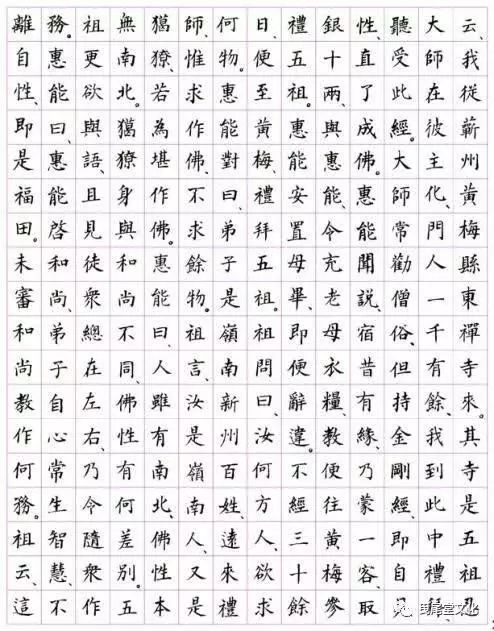 云、我從蘄州黃梅縣東禪寺來。其寺是五祖忍
大師在彼主化、門人一千有餘、我到此中禮拜、
聽受此經。大師常勸僧俗、但持金剛經、即自見
性、直了成佛。惠能聞說、宿昔有緣、乃蒙一客、取
銀十兩與惠能、令充老母衣糧、教便往黃梅參
禮五祖。惠能安置母畢、即便辭違。不經三十餘
日、便至黃梅、禮拜五祖。祖問曰、汝何方人、欲求
何物。惠能對曰、弟子是嶺南新州百姓、遠來禮
師、惟求作佛、不求餘物。祖言、汝是嶺南人、又是
獦獠、若為堪作佛。惠能曰、人雖有南北、佛性本
無南北。獦獠身與和尚不同、佛性有何差別。五
祖更欲與語、且見徒衆總在左右、乃令隨衆作
務。惠能曰、惠能啓和尚、弟子自心常生智慧、不
離自性、即是福田。未審和尚教作何務。祖云、這